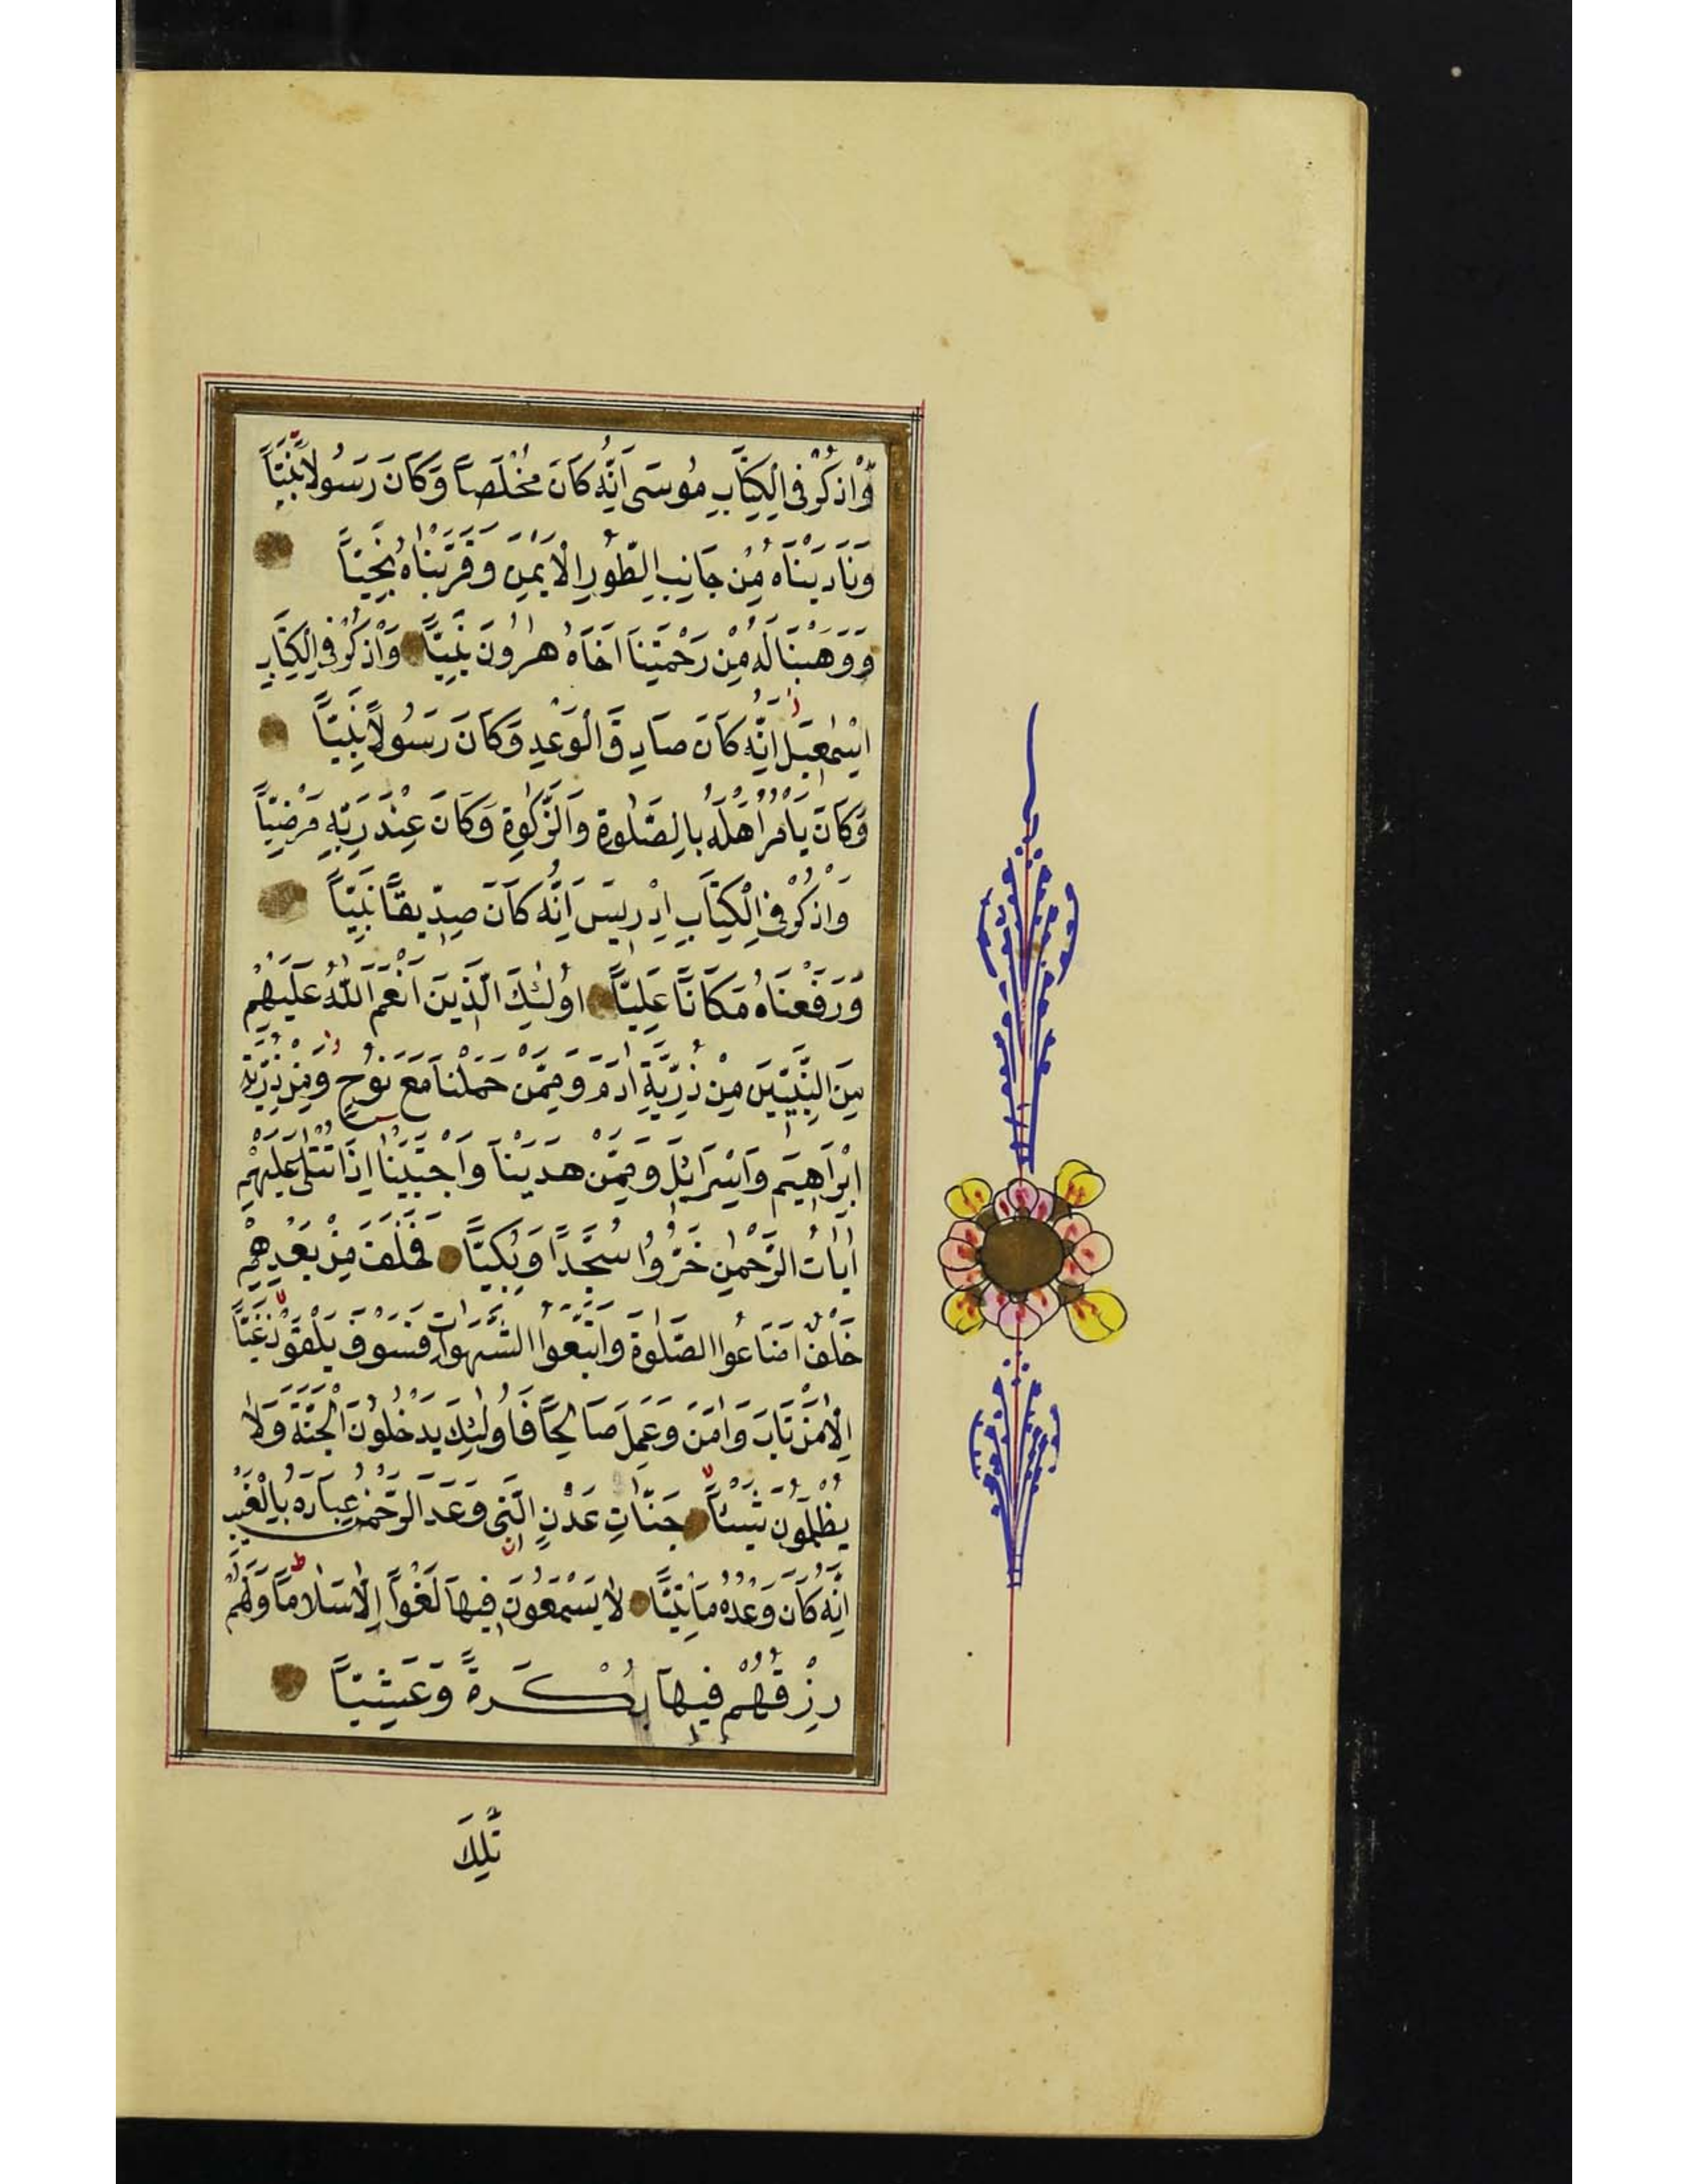 وَاذْكُرْ فِى الْكِتَابِ مُوسَى اِنَّهُ كَانَ مُخْلَصاً وَكَانَ رَسُولاً نَبِيّاً
وَنَادَيْنَاهُ مِنْ جَانِبِ الطُّورِ الْاَيْمَنِ وَقَرَّبْنَاهُ نَجِيّاً
وَوَهَبْنَا لَهُ مِنْ رَحْمَتِنَا اَخَاهُ هٰرُونَ نَبِيّاً وَاذْكُرْ فِى الْكِتَابِ
اِسْمٰعِيلَ اِنَّهُ كَانَ صَادِقَ الْوَعْدِ وَكَانَ رَسُولاً نَبِيّاً
وَكَانَ يَاْمُرُ اَهْلَهُ بِالصَّلٰوةِ وَالزَّكٰوةِ وَكَانَ عِنْدَ رَبِّهِ مَرْضِيّاً
وَاذْكُرْ فِى الْكِتَابِ اِدْرِيسَ اِنَّهُ كَانَ صِدِّيقاً نَبِيّاً
وَرَفَعْنَاهُ مَكَاناً عَلِيّاً اُولٰئِكَ الَّذِينَ اَنْعَمَ اللّٰهُ عَلَيْهِمْ
مِنَ النَّبِيّينَ مِنْ ذُرِّيَّةِ اٰدَمَ وَمِمَّنْ حَمَلْنَا مَعَ نُوحٍ وَمِنْ ذُرِّيَّةِ
اِبْرَاهِيمَ وَاِسْرَائِلَ وَمِمَّنْ هَدَيْنَا وَاجْتَبَيْنَا اِذَا تُتْلٰى عَلَيْهِمْ
اٰيَاتُ الرَّحْمٰنِ خَرُّوا سُجَّداً وَبُكِيّاً فَخَلَفَ مِنْ بَعْدِهِمْ
خَلْفٌ اَضَاعُوا الصَّلٰوةَ وَاتَّبَعُوا الشَّهَوَاتِ فَسَوْفَ يَلْقَوْنَ غَيّاً
اِلَّا مَنْ تَابَ وَاٰمَنَ وَعَمِلَ صَالِحاً فَاُولٰئِكَ يَدْخُلُونَ الْجَنَّةَ وَلَا
يُظْلَمُونَ شَيْئاً جَنَّاتِ عَدْنٍ الَّتِى وَعَدَ الرَّحْمٰنُ عِبَادَهُ بِالْغَيْبِ
اِنَّهُ كَانَ وَعْدُهُ مَاْتِيّاً لَا يَسْمَعُونَ فِيهَا لَغْواً اِلَّا سَلَاماً وَلَهُمْ
رِزْقُهُمْ فِيهَا بُكْرَةً وَعَشِيّاً
تِلْكَ